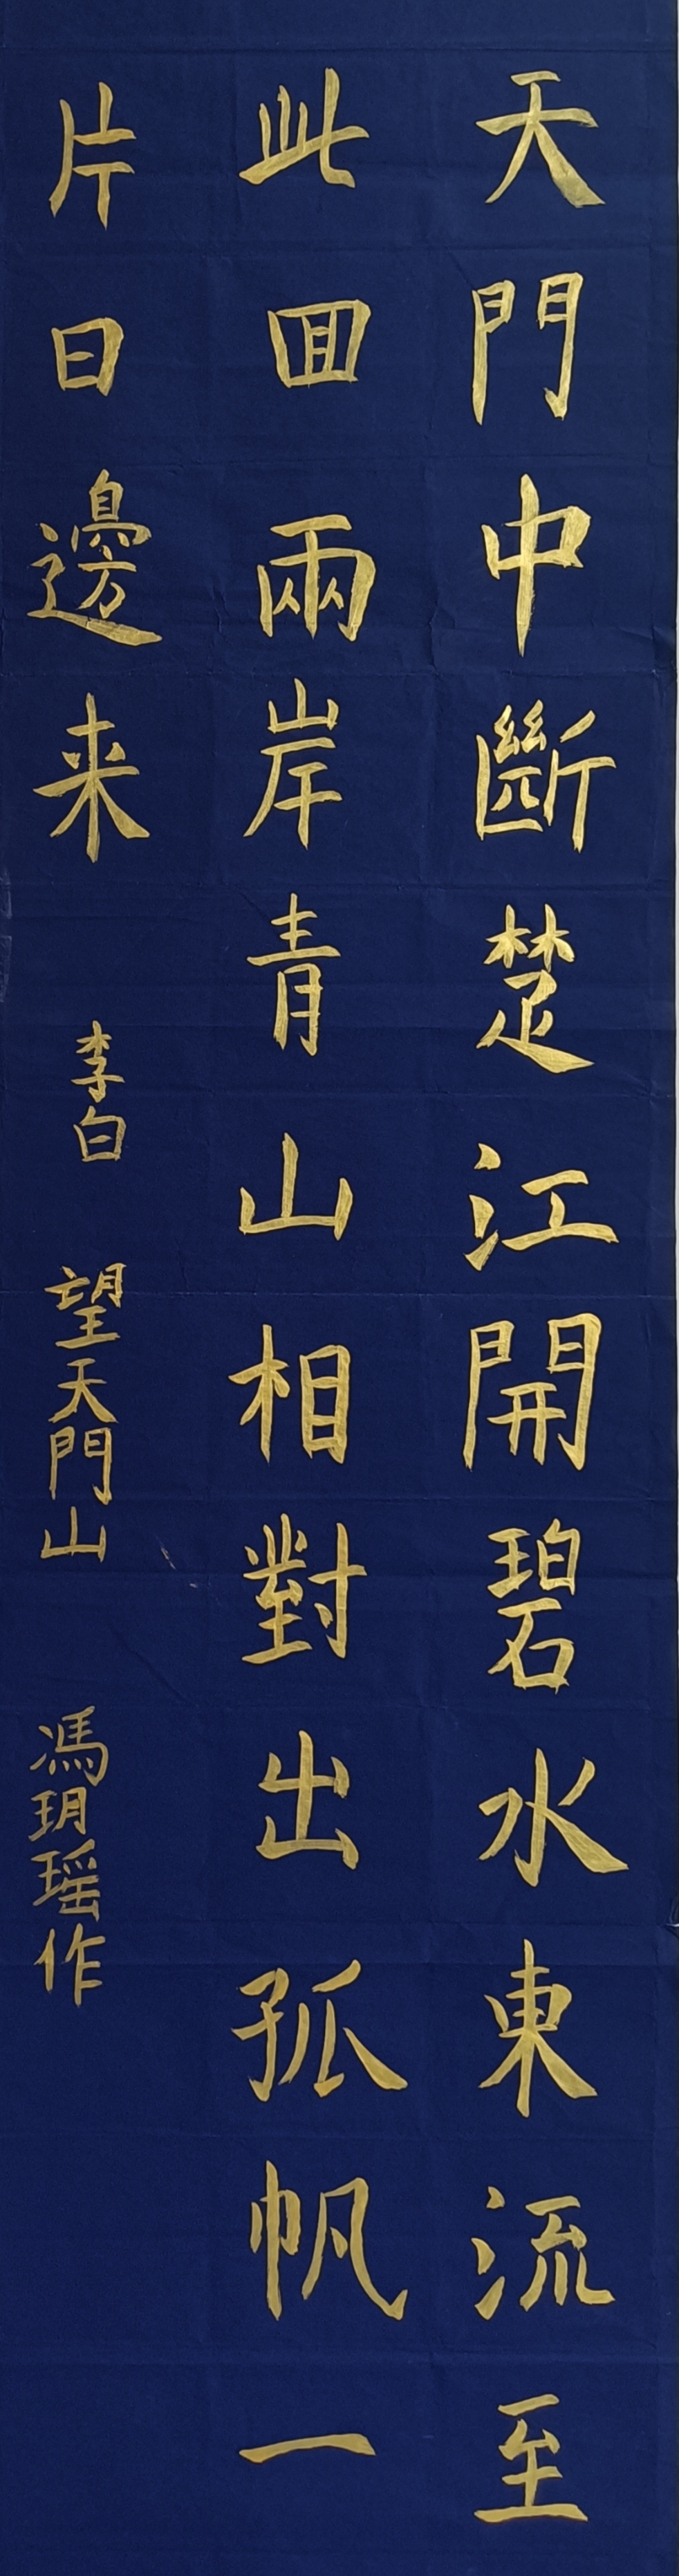 天門中斷楚江開碧水東流至
此囬兩岸青山相對出孤帆一
片日邊来
李白
望天門山
馮玥瑶作